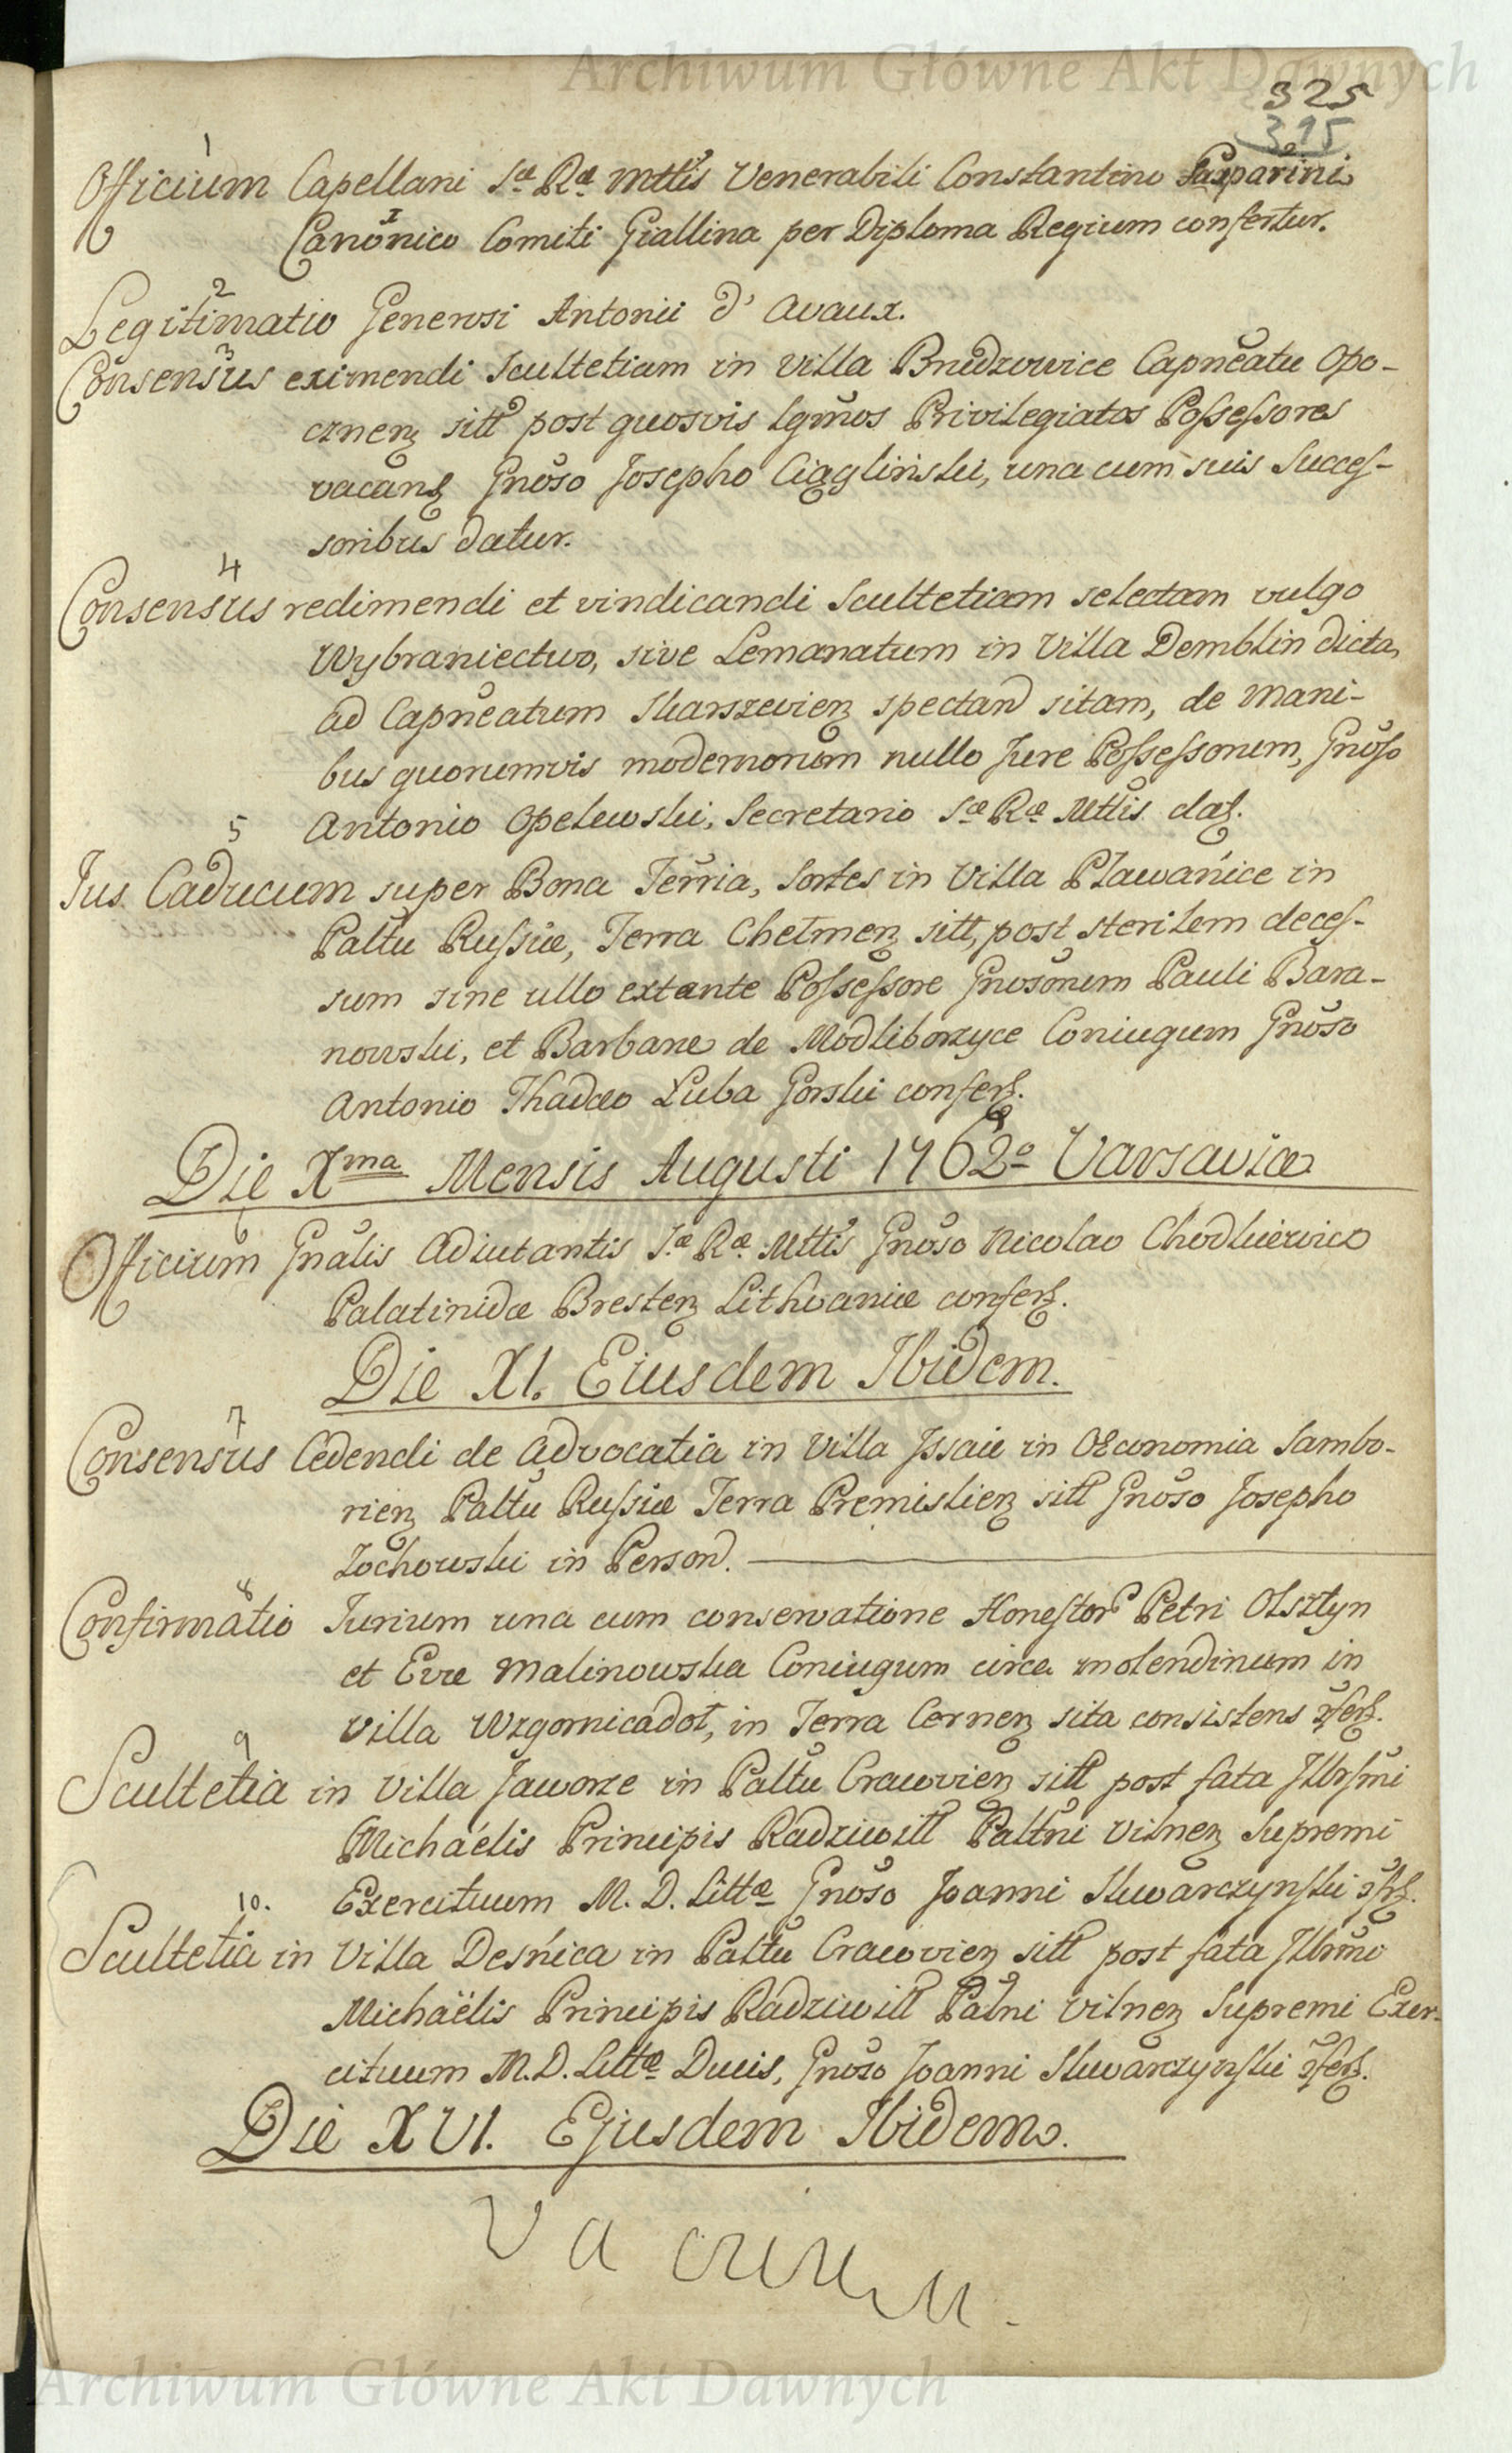 Archiwum Główne Akt Dawnych
325
315
1
Officium Capellani Sæ Ræ Mttis Venerabili Constantino Gasparini
Canonico Comiti Giallina per Diploma Regium confertur.
2
Legitimatio Generosi Antonii d' Avaux.
3
Consensus eximendi Scultetiam in Villa Brudzowice Capneatu Opo-
cznen sitt post quosvis lgmos Privilegiatos Possessores
vacan Gnoso Josepho Ciągliński, una cum suis Succes-
soribus datur.
4
Consensus redimendi et vindicandi Scultetiam selectam vulgo
Wybraniectwo, sive Lemanatum in Villa Demblin dicta,
ad Capneatum Skarszevien spectand sitam, de mani-
bus quorumvis modernorum nullo Jure Possessorum, Gnoso
Antonio Opelewski, Secretario Sæ Ræ Mttis dat.
5
Jus Caducum super Bona Terria, Sortes in Villa Pławanice in
Paltu Russiæ, Terra Chelmen sitt, post sterilem deces-
sum sine ullo extante Possessore Gnosorum Pauli Bara-
nowski, et Barbaræ de Modliborzyce Coniugum Gnoso
Antonio Thadæo Luba Gorski confert.
Die Xma Mensis Augusti 1762o Varsaviæ
6
Officium Gnalis Adiutantis Sæ Ræ Mttis Gnoso Nicolao Chodkiewicz
Palatinidæ Bresten Lithvaniæ confert.
Die XI. Eiusdem Ibidem.
7
Consensus Cedendi de Advocatia in Villa Issaie in Œconomia Sambo-
rien Paltu Russiæ Terra Premislien sitt Gnoso Josepho
Zochowski in Person.
8
Confirmatio Jurium una cum conservatione Honestor Petri Olsztyn
et Evæ Malinowska Coniugum circa molendinum in
Villa Wzgornicadot, in Terra Cernen sita consistens
9
Scultetia in Villa Jaworze in Paltu Cracovien sitt post fata Illrsmi
Michaelis Principis Radziwill Paltni Vilnen Supremi
Exercituum M. D. Littæ Gnoso Joanni Skwarczynski
10.
Scultetia in Villa Desnica in Paltu Cracovien sitt post fata Illrmi
Michaëlis Principis Radziwill Palni Vilnen Supremi Exer-
cituum M. D. Littæ Ducis, Gnoso Joanni Skwarczynski
Die XVI. Ejusdem Ibidem.
Archiwum Główne Akt Dawnych